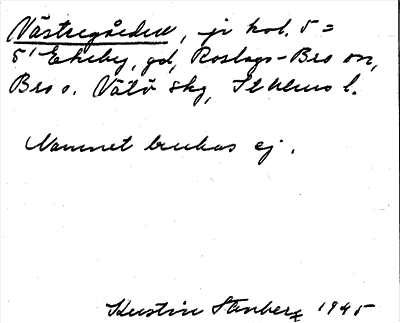 Västregården, jr kol. 5 =
5¹ Ekeby, gd, Roslags-Bro sn,
Bro o. Vätö skg, Sthlms l.
Namnet brukas ej.
Kerstin Stenberg 1945